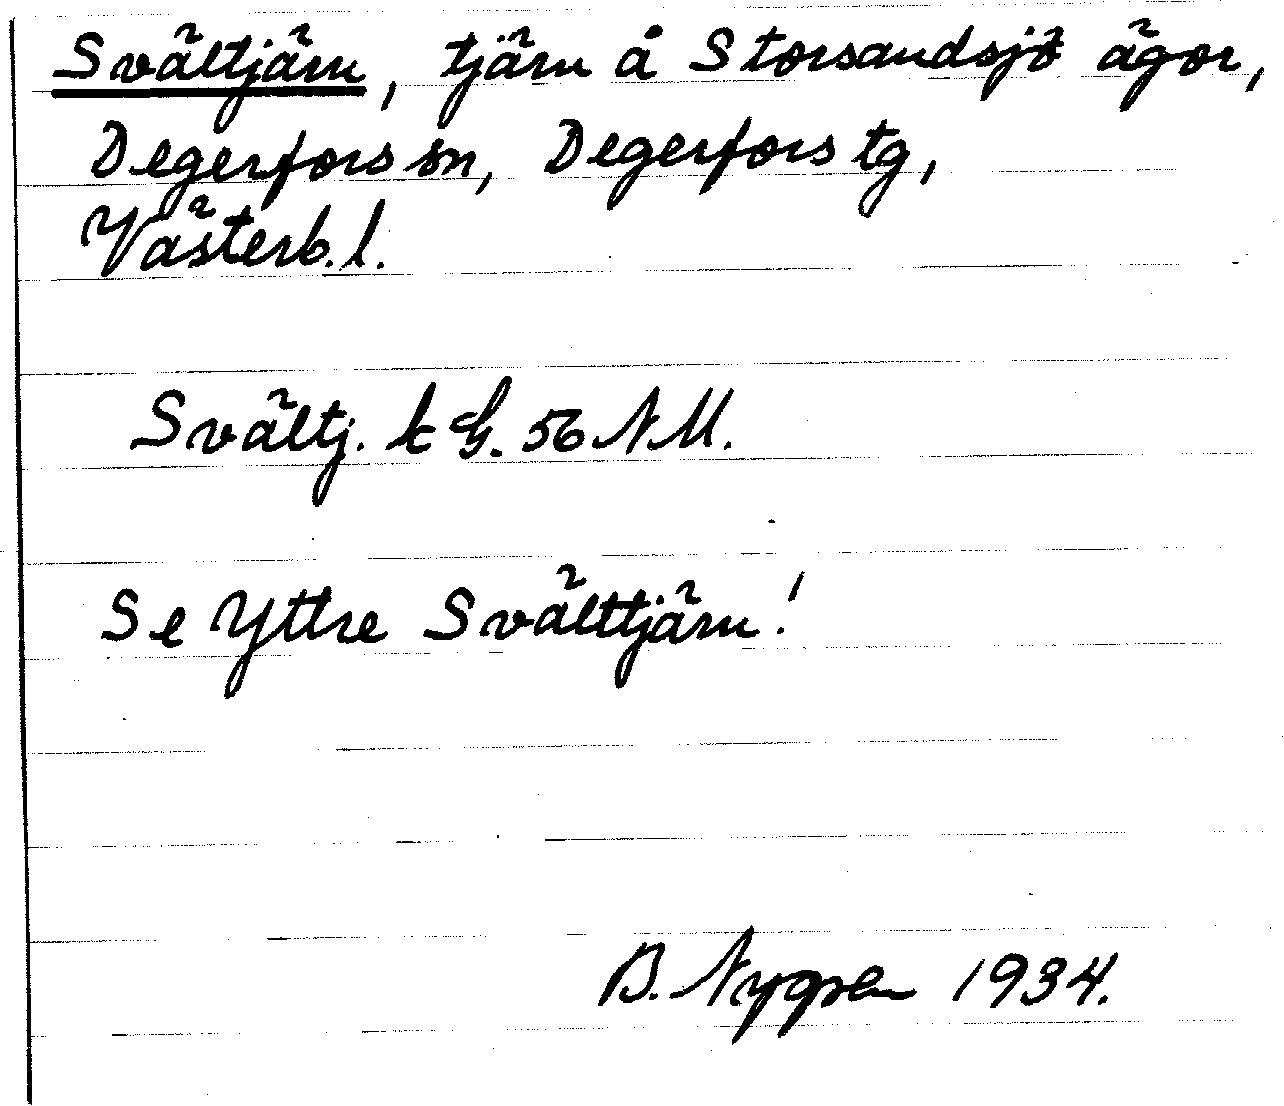 Svältjärn, tjärn å Storsandsjö ägor,
Degerfors sn, Degerfors tg,
Västerb. l.
Svältj. k G. 56 NM.
Se Yttre Svälttjärn!
B. Nygren 1934.